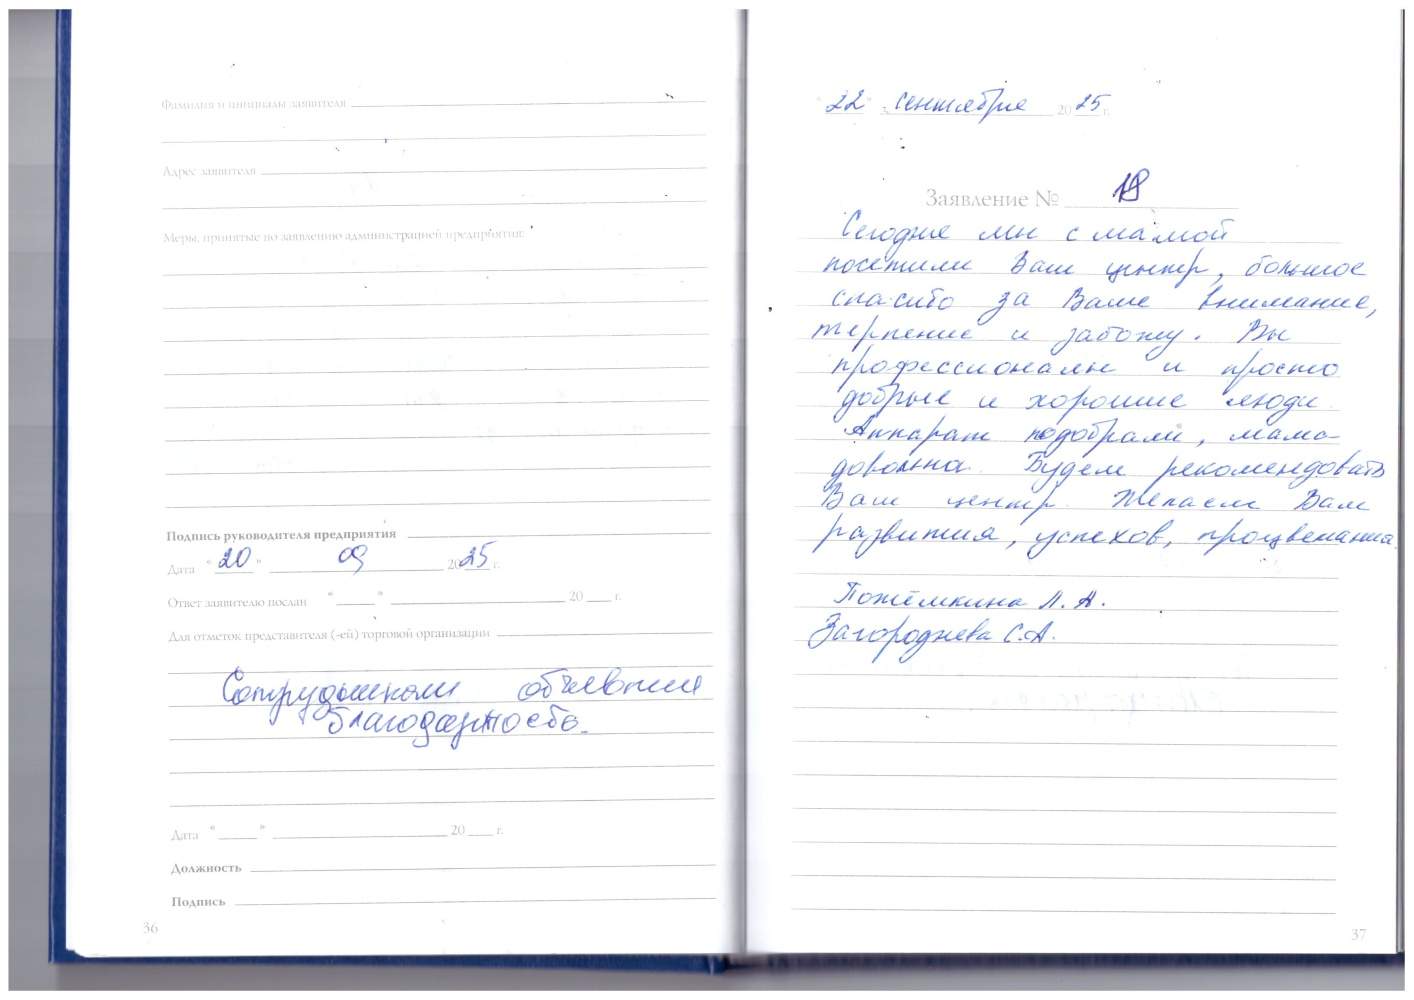 Фамилия и инициалы заявителя
Адрес заявителя
Меры, принятые по заявлению администрацией предприятия:
Подпись руководителя предприятия
Дата "20" 09 2025 г.
Ответ заявителю послан " " 20 г.
Для отметок представителя (-ей) торговой организации
Сотрудникам объявлена
благодарность.
Дата " " 20 г.
Должность
Подпись
36
"22" сентября 2025 г.
Заявление № 18
Сегодня мы с мамой
посетили Ваш центр, большое
спасибо за Ваше внимание,
терпение и заботу. Вы
профессионалы и просто
добрые и хорошие люди.
Аппарат подобрали, мама
довольна. Будем рекомендовать
Ваш центр. Желаем Вам
развития, успехов, процветания.
Потёмкина Л. А.
Загороднева С.А.
37